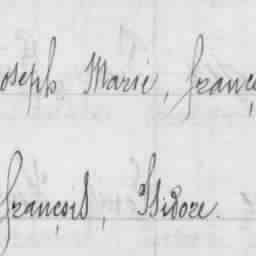 oseph, Marie, franç
françois, Isidore.